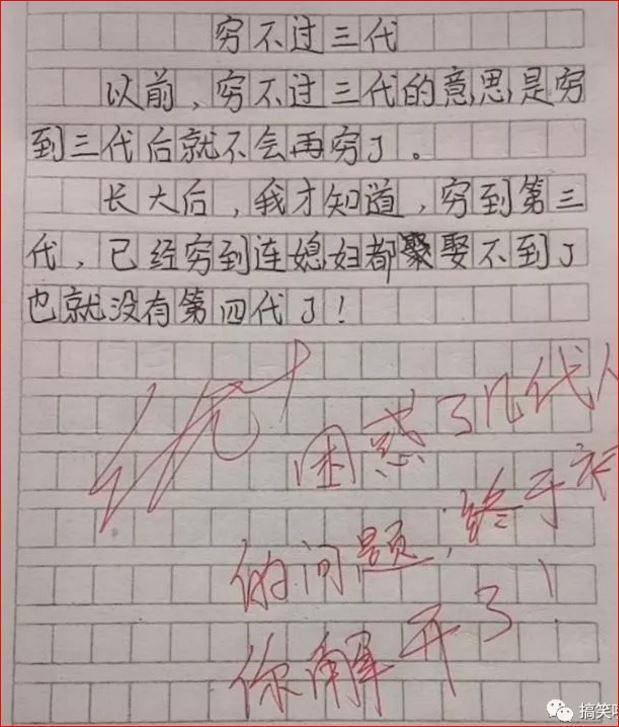 穷不过三代
以前，穷不过三代的意思是穷
到三代后就不会再穷了。
长大后，我才知道，穷到第三
代，已经穷到连媳妇都娶不到了
也就没有第四代了！
优+
困惑了几代人
的问题，终于被
你解开了！
搞笑